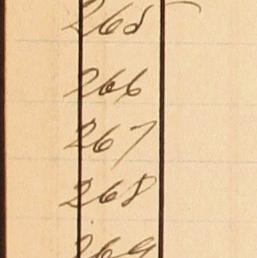 265
266
267
268
269